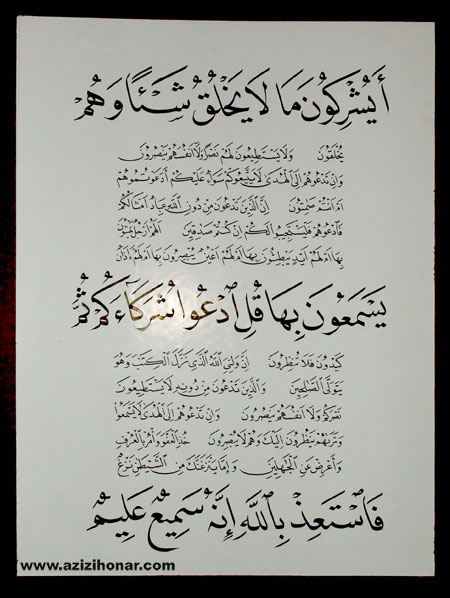 أَيُشْرِكُونَ مَا لَا يَخْلُقُ شَيْـًٔا وَهُمْ
يُخْلَقُونَ وَلَا يَسْتَطِيعُونَ لَهُمْ نَصْرًا وَلَا أَنفُسَهُمْ يَنصُرُونَ
وَإِن تَدْعُوهُمْ إِلَى الْهُدَىٰ لَا يَتَّبِعُوكُمْ سَوَاءٌ عَلَيْكُمْ أَدَعَوْتُمُوهُمْ
أَمْ أَنتُمْ صَٰمِتُونَ إِنَّ الَّذِينَ تَدْعُونَ مِن دُونِ اللَّهِ عِبَادٌ أَمْثَالُكُمْ
فَادْعُوهُمْ فَلْيَسْتَجِيبُوا لَكُمْ إِن كُنتُمْ صَٰدِقِينَ أَلَهُمْ أَرْجُلٌ يَمْشُونَ
بِهَا أَمْ لَهُمْ أَيْدٍ يَبْطِشُونَ بِهَا أَمْ لَهُمْ أَعْيُنٌ يُبْصِرُونَ بِهَا أَمْ لَهُمْ ءَاذَانٌ
يَسْمَعُونَ بِهَا قُلِ ٱدْعُوا۟ شُرَكَآءَكُمْ ثُمَّ
كِيدُونِ فَلَا تُنظِرُونِ إِنَّ وَلِيِّيَ اللَّهُ الَّذِي نَزَّلَ الْكِتَٰبَ وَهُوَ
يَتَوَلَّى الصَّٰلِحِينَ وَالَّذِينَ تَدْعُونَ مِن دُونِهِ لَا يَسْتَطِيعُونَ
نَصْرَكُمْ وَلَا أَنفُسَهُمْ يَنصُرُونَ وَإِن تَدْعُوهُمْ إِلَى الْهُدَىٰ لَا يَسْمَعُوا
وَتَرَىٰهُمْ يَنظُرُونَ إِلَيْكَ وَهُمْ لَا يُبْصِرُونَ خُذِ الْعَفْوَ وَأْمُرْ بِالْعُرْفِ
وَأَعْرِضْ عَنِ الْجَٰهِلِينَ وَإِمَّا يَنزَغَنَّكَ مِنَ الشَّيْطَٰنِ نَزْغٌ
فَٱسْتَعِذْ بِٱللَّهِ إِنَّهُ سَمِيعٌ عَلِيمٌ
www.azizihonar.com